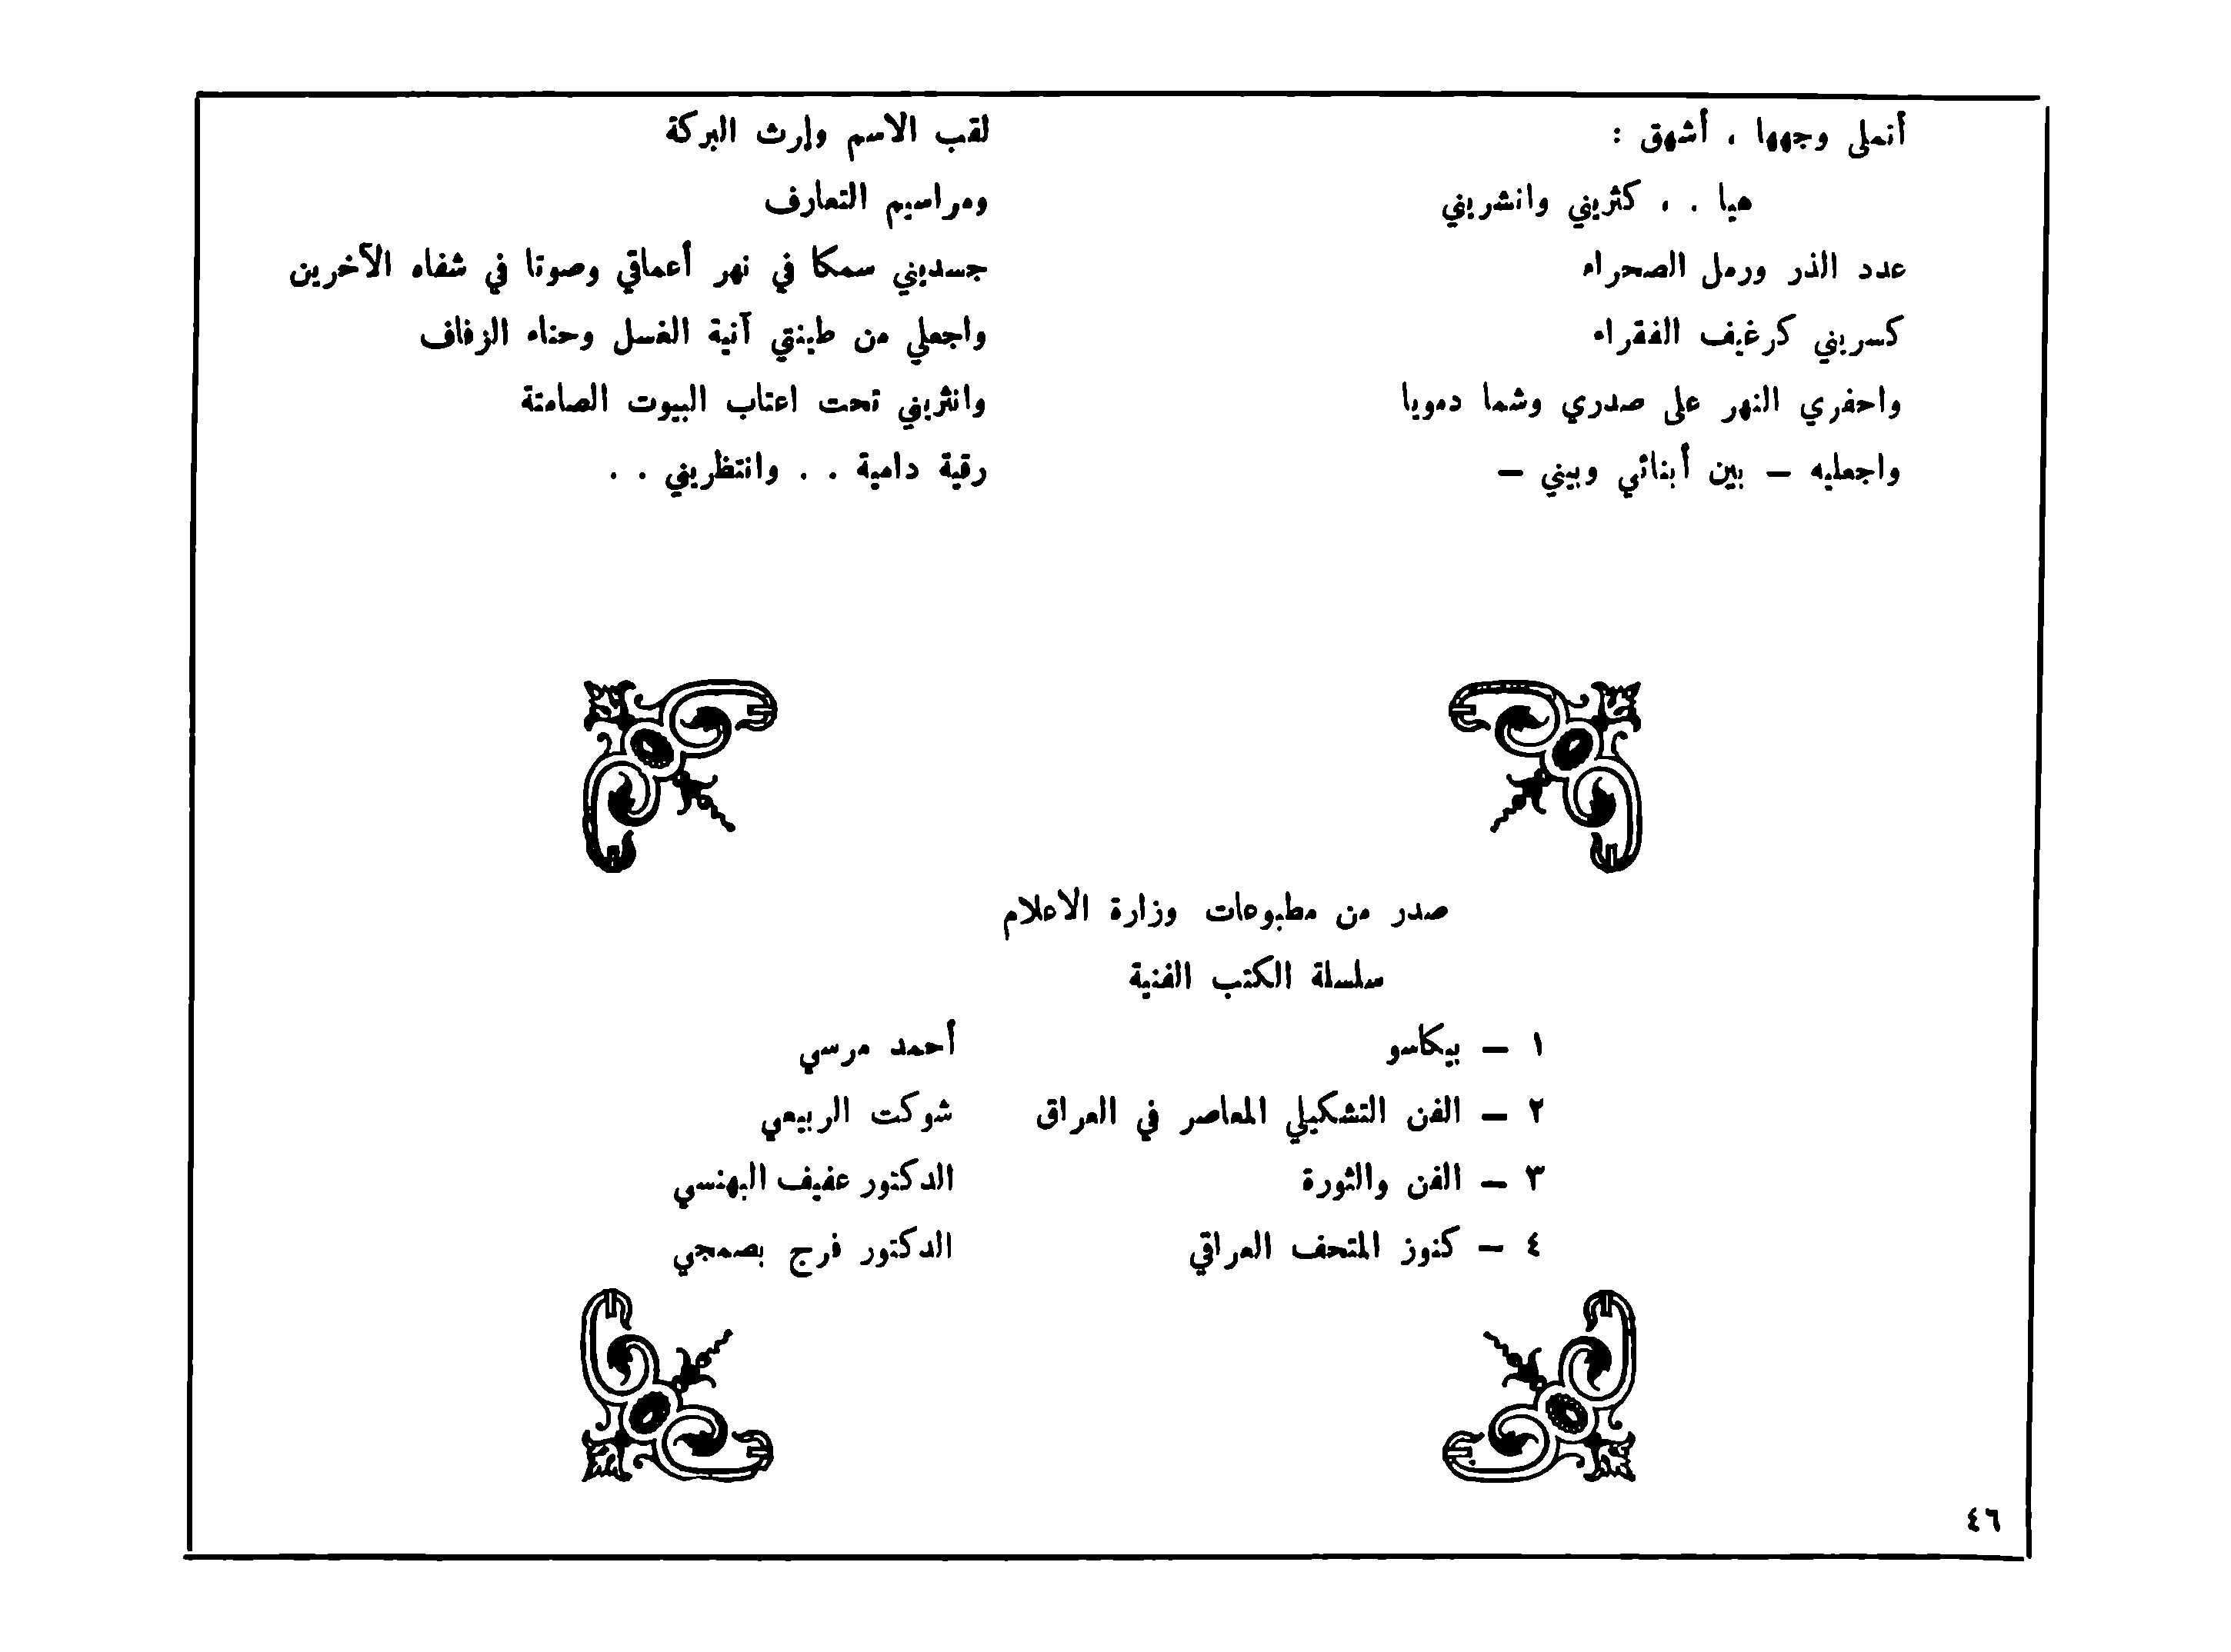 أتملى وجهها ، أشهق :
هيا . ، كثريني وانشريني
عدد الذر ورمل الصحراء
كسريني كرغيف الفقراء
واحفري النهر على صدري وشما دمويا
واجعليه – بين أبنائي وبيني –
لقب الاسم وإرث البركة
ومراسيم التعارف
جسديني سمكا في نهر أعماقي وصوتا في شفاه الآخرين
واجعلي من طينتي آنية الغسل وحناء الزفاف
وانثريني تحت اعتاب البيوت الصامتة
رقية دامية . . وانتظريني . .
صدر من مطبوعات وزارة الاعلام
سلسلة الكتب الفنية
١ – بيكاسو أحمد مرسي
٢ – الفن التشكيلي المعاصر في العراق شوكت الربيعي
٣ – الفن والثورة الدكتور عفيف البهنسي
٤ – كنوز المتحف العراقي الدكتور فرج بصمجي
٤٦